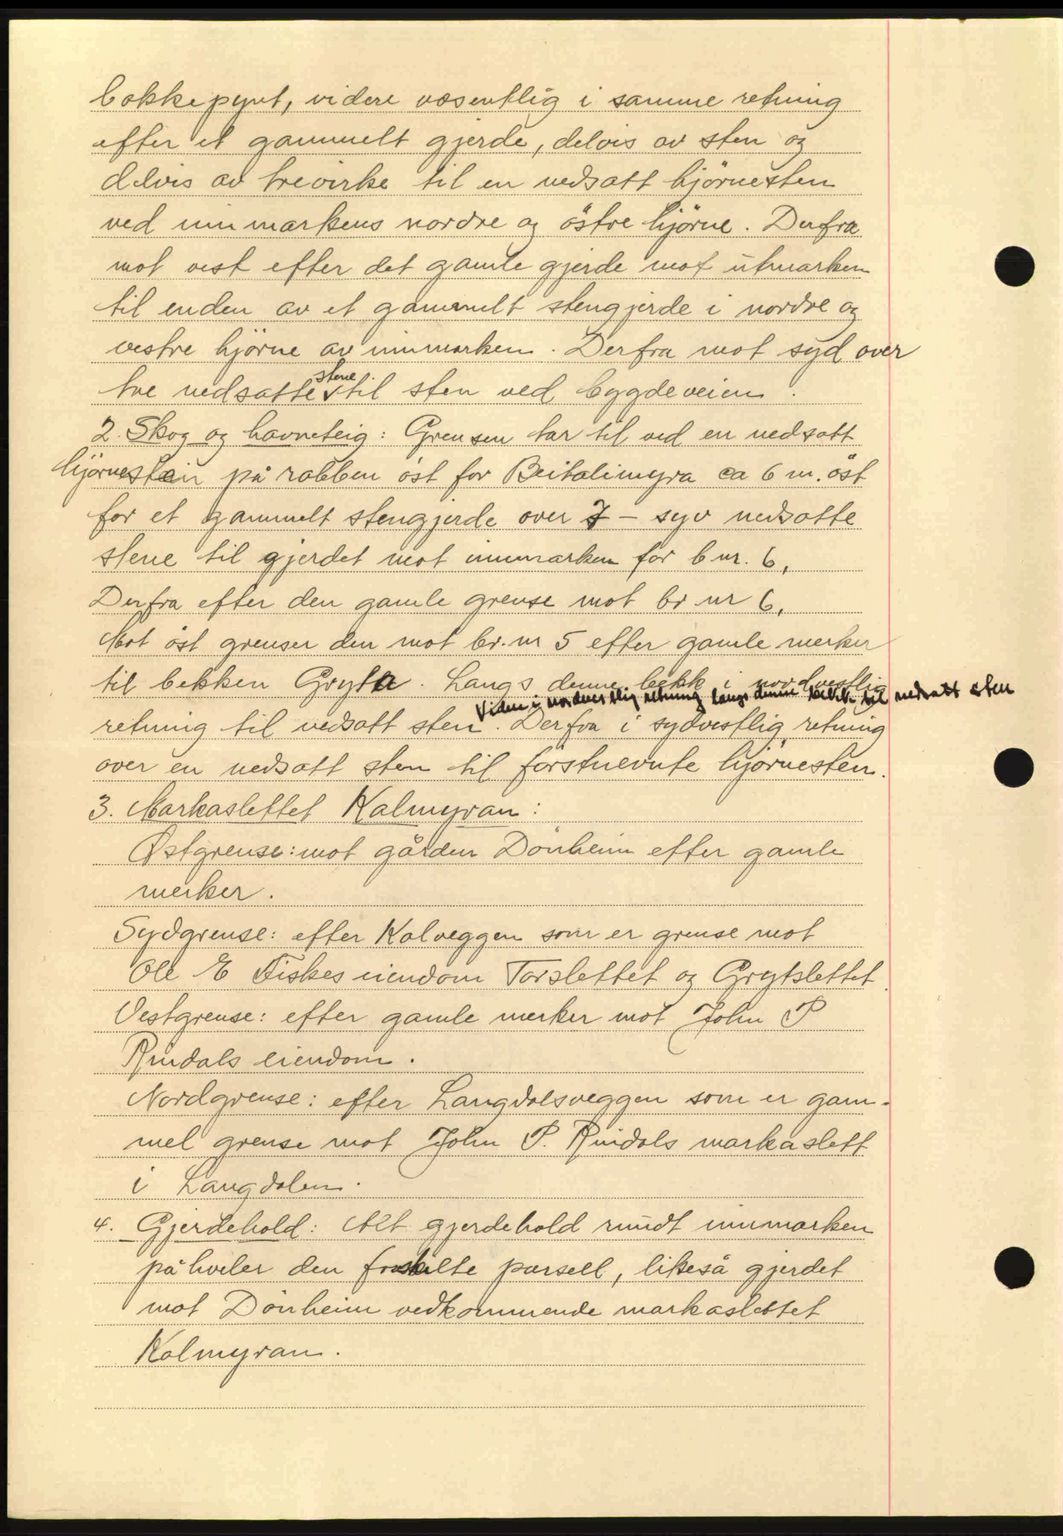 bakkepynt, videre væsentlig i samme retning
efter et gammelt gjerde, delvis av sten og
delvis av trevirke til en nedsatt hjörnesten
ved innmarkens nordre og östre hjörne. Derfra
mot vest efter det gamle gjerde mot utmarken
til enden av et gammelt stengjerde i nordre og
vestre hjörne av innmarken. Derfra mot syd over
stene
tre nedsatte til sten ved bygdeveien.
2. Skog og havneteig: Grensen tar til ved en nedsatt
hjörnestein på rabben öst for Beitalimyra ca 6 m. öst
for et gammelt stengjerde over 7 - syv nedsatte
stene til gjerdet mot innmarken for b nr. 6,
Derfra efter den gamle grense mot br nr 6,
Mot öst grenser den mot br. nr 5 efter gamle merker
til bekken Gryta. Langs denne bekk i nordvestlig
Videre i nordvestlig retning langs denne bekk til nedsatt sten
retning til nedsatt sten. Derfra i sydvestlig retning
over en nedsatt sten til förstnevnte hjörnesten.
3. Markaslettet Kalmyran:
Östgrense: mot gården Dönheim efter gamle
merker.
Sydgrense: efter Kalveggen som er grense mot
Ole E Fiskes eiendom Torslettet og Grytslettet.
Vestgrense: efter gamle merker mot John P
Rindals eiendom.
Nordgrense: efter Langdalsveggen som er gam-
mel grense mot John P. Rindals markaslett
i Langdalen.
4. Gjerdehold: Alt gjerdehold rundt innmarken
påhviler den fraskilte parsell, likeså gjerdet
mot Dönheim vedkommende markaslettet
Kalmyran.